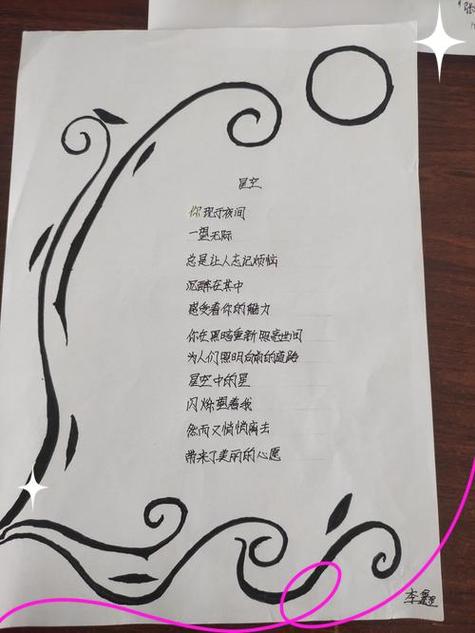 星空
你现于夜间
一望无际
总是让人忘记烦恼
沉醉在其中
感受着你的魅力
你在黑暗重新照亮世间
为人们照明向前的道路
星空中的星
闪烁望着我
然而又悄悄离去
带来了美丽的心愿
李